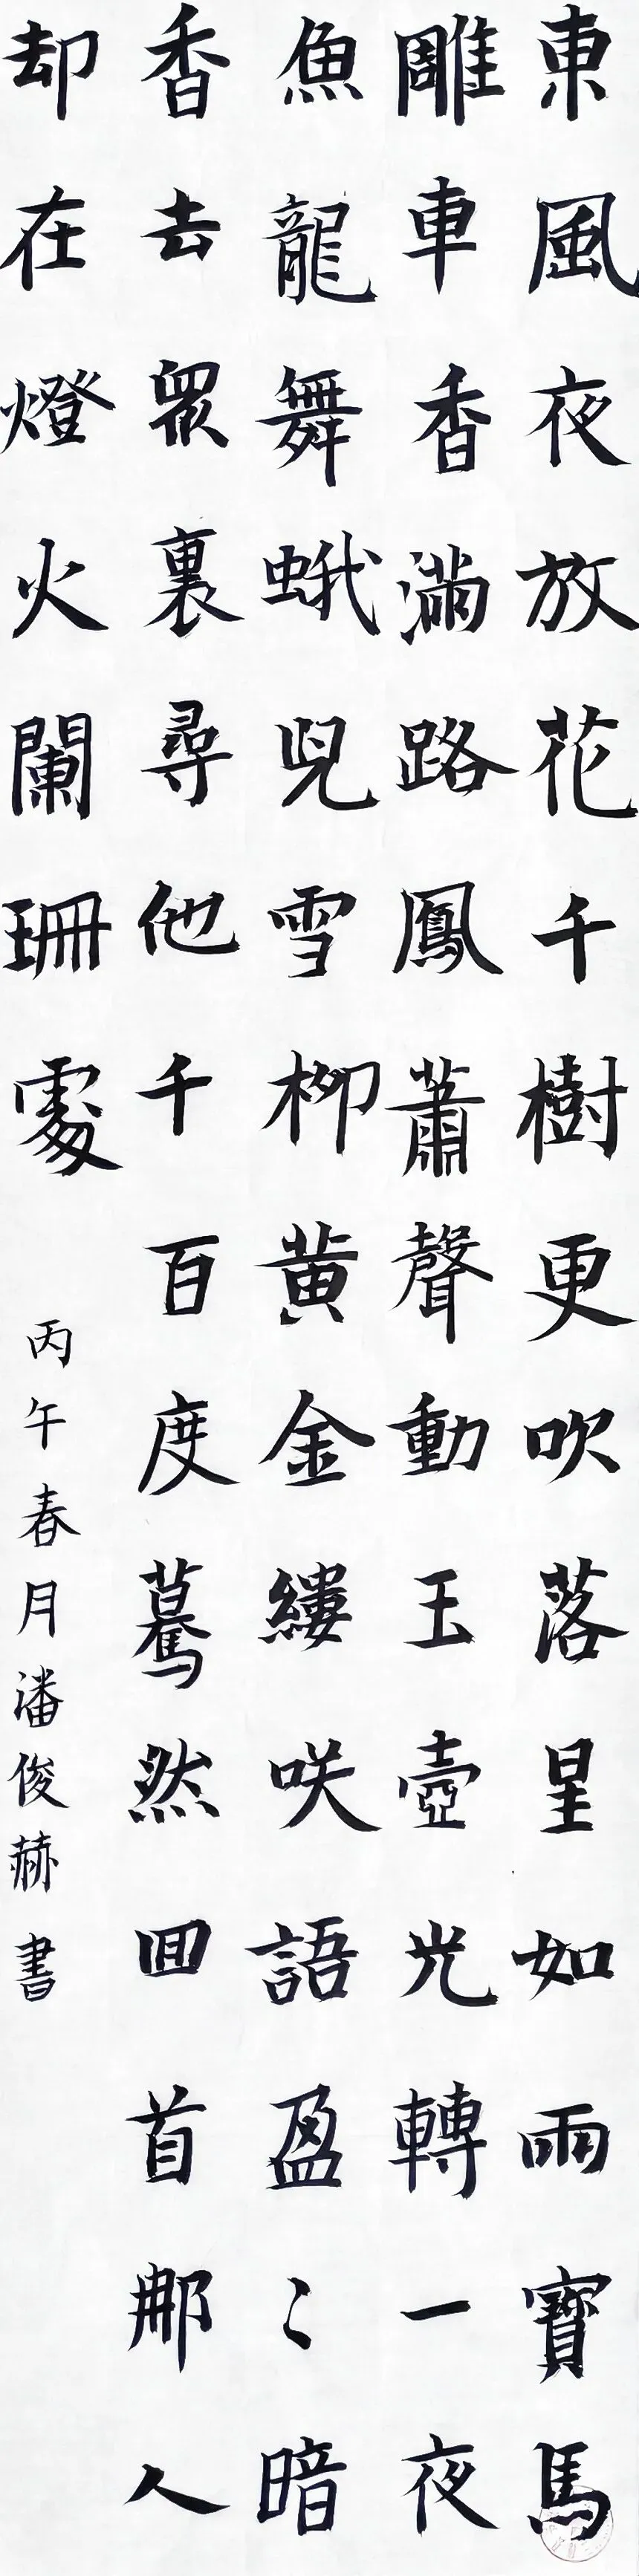 東風夜放花千樹更吹落星如雨寶馬
雕車香滿路鳳蕭聲動玉壺光轉一夜
魚龍舞蛾兒雪柳黃金縷咲語盈〻暗
香去眾裏尋他千百度驀然囬首那人
却在燈火闌珊處
丙午春月潘俊赫書